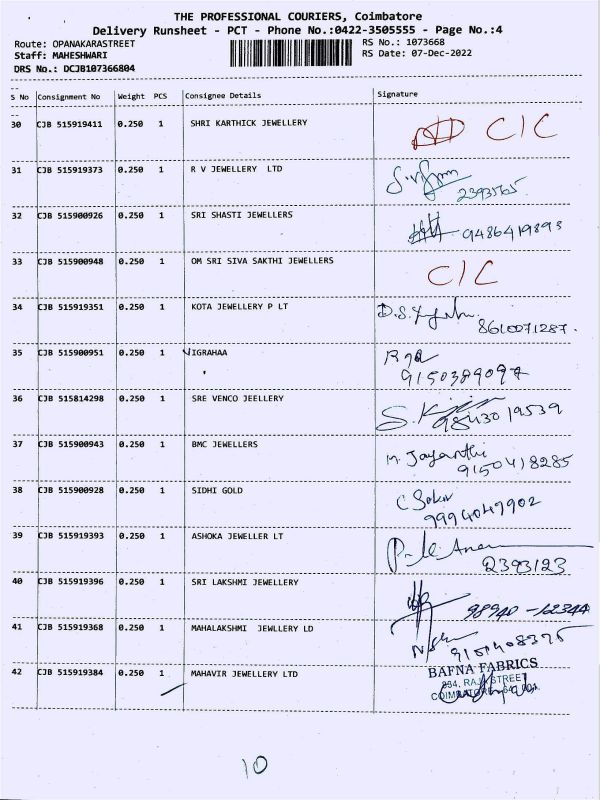 THE PROFESSIONAL COURIERS, Coimbatore
Delivery Runsheet - PCT - Phone No.:0422-3505555 - Page No.:4
Route: OPANAKARASTREET RS No.: 1073668
Staff: MAHESHWARI RS Date: 07-Dec-2022
DRS No.: DCJB107366804
S No Consignment No Weight PCS Consignee Details Signature
30 CJB 515919411 0.250 1 SHRI KARTHICK JEWELLERY C/C
31 CJB 515919373 0.250 1 R V JEWELLERY LTD
2393565
32 CJB 515900926 0.250 1 SRI SHASTI JEWELLERS 9486419893
33 CJB 515900948 0.250 1 OM SRI SIVA SAKTHI JEWELLERS C/C
34 CJB 515919351 0.250 1 KOTA JEWELLERY P LT
8610071287.
35 CJB 515900951 0.250 1 VIGRAHAA
9150389097
36 CJB 515814298 0.250 1 SRE VENCO JEELLERY
9843019539
37 CJB 515900943 0.250 1 BMC JEWELLERS M. Jayanthi
9150418285
38 CJB 515900928 0.250 1 SIDHI GOLD
9994049902
39 CJB 515919393 0.250 1 ASHOKA JEWELLER LT
2393123
40 CJB 515919396 0.250 1 SRI LAKSHMI JEWELLERY
98940-12344
41 CJB 515919368 0.250 1 MAHALAKSHMI JEWLLERY LD
42 CJB 515919384 0.250 1 MAHAVIR JEWELLERY LTD BAFNA FABRICS
10